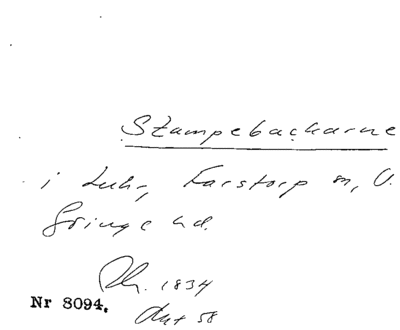 Stampebackarne
i Luhr, Farstorp m, V.
Göinge hd.
Ph. 1834
Nr 8094.
Akt 58